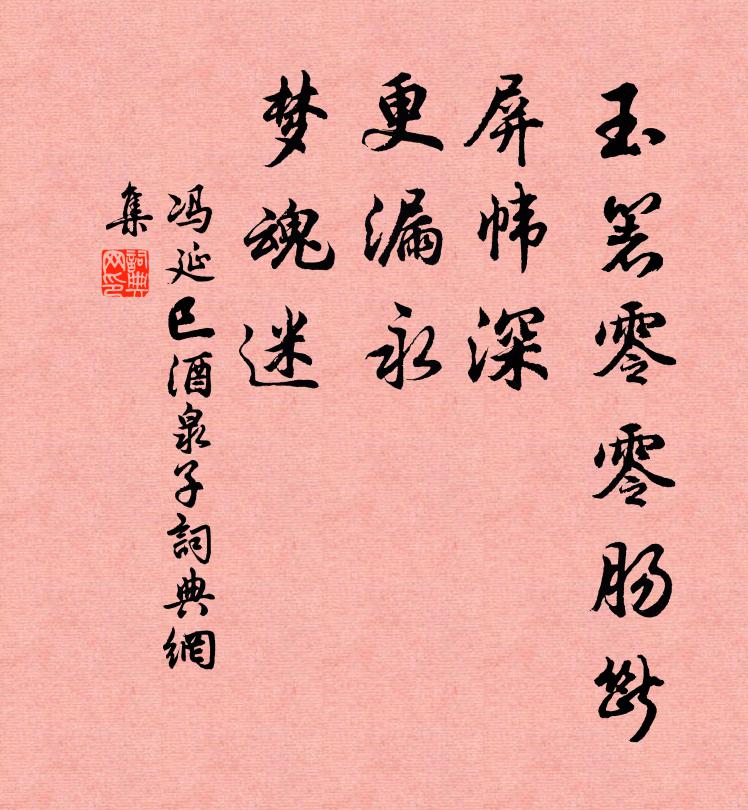 玉箸零零肠断
屏帏深
更漏永
梦魂迷
冯延巳酒泉子詞典網
集
詞典网印